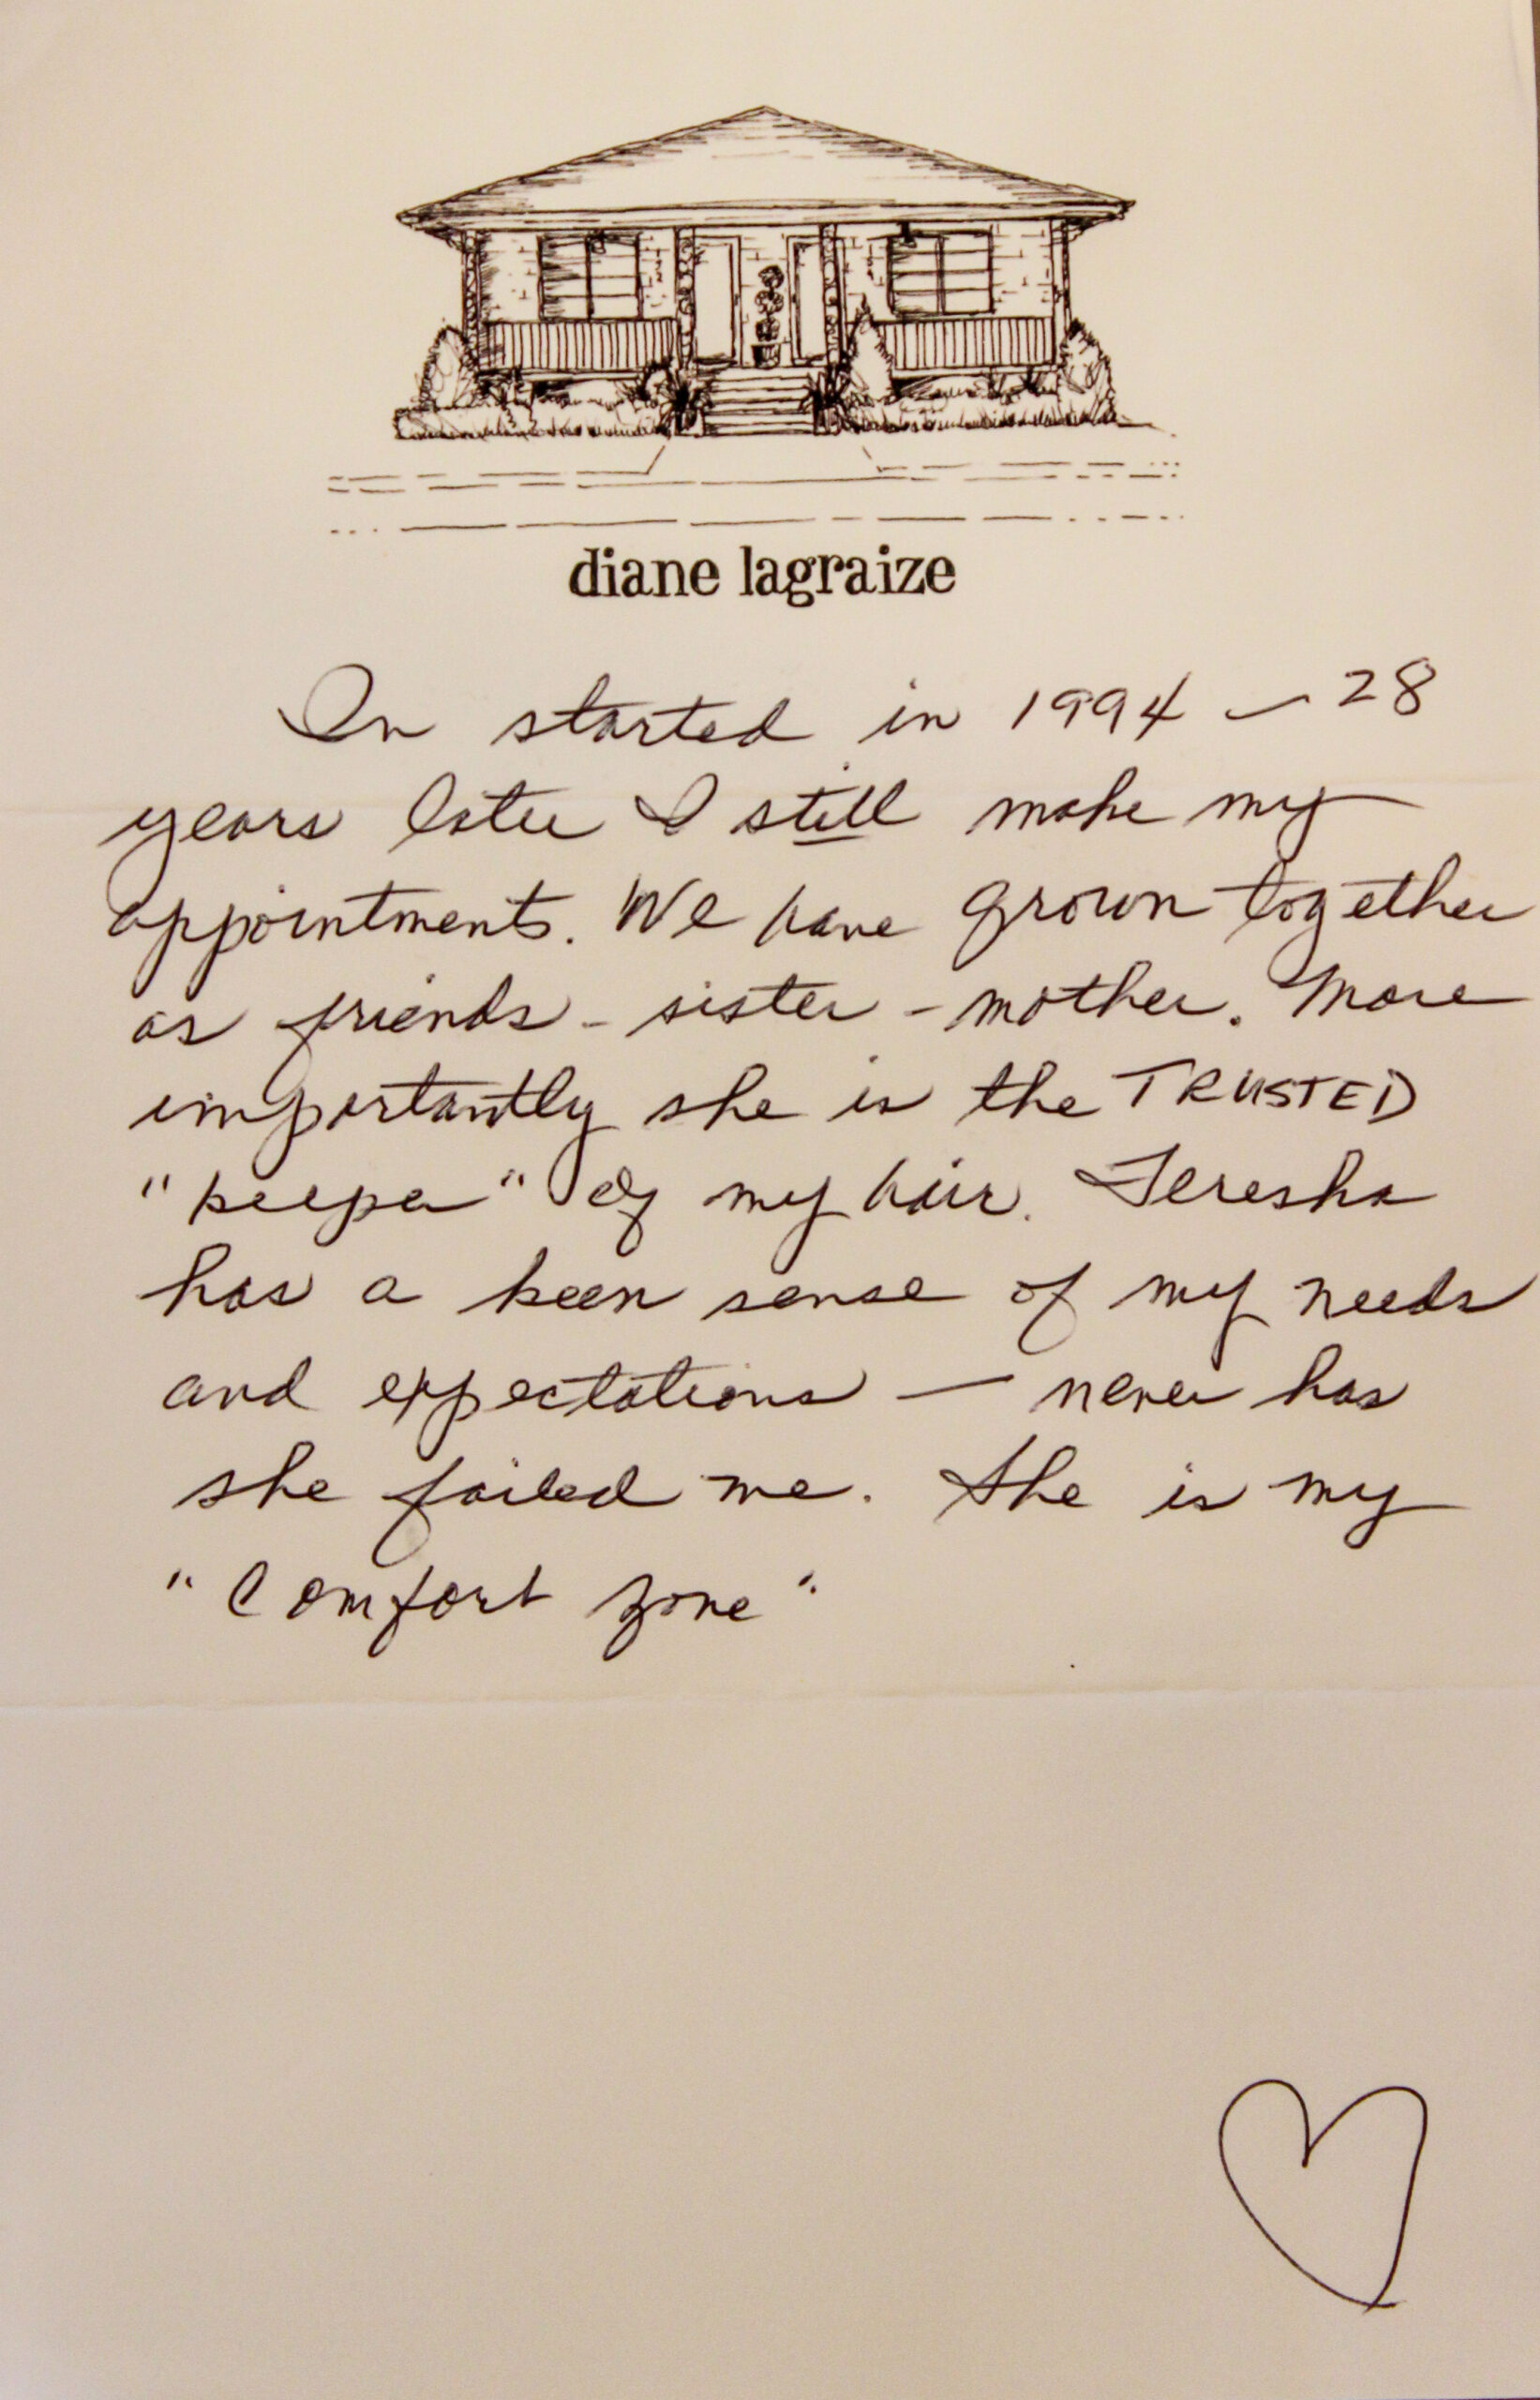 diane lagraize
In started in 1994 - 28
years later I still make my
appointments. We have grown together
as friends - sister - mother. More
importantly she is the TRUSTED
"keeper" of my hair. Teresha
has a keen sense of my needs
and expectations — never has
she failed me. She is my
"Comfort zone"